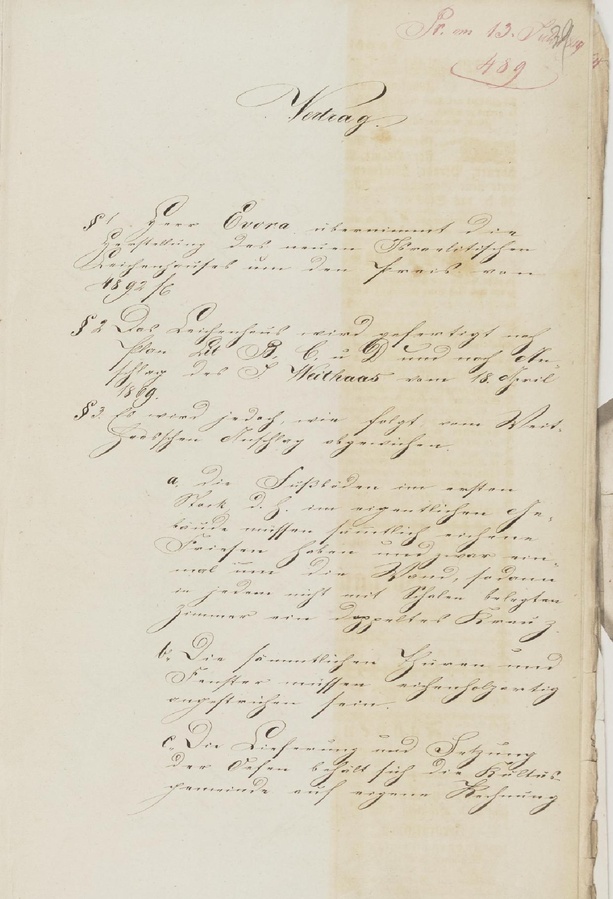 Pr. am 13. Juli
489
Vertrag.
§ 1. Herr Evora übernimmt die
Herstellung des neuen Israelitischen
Leichenhauses um den Preis von
4892 fl
§ 2 Das Leichenhaus wird gefertigt nach
Plan Lit B, C. u D und nach An-
schlag des J. Weithaas vom 18. April
1869.
§ 3. Es wird jedoch, wie folgt, vom Weit-
haasschen Anschlag abgewichen.
a, Die Fußböden im ersten
Stock, d. h. im eigentlichen Ge-
bäude müssen sämtlich eichene
Friesen haben und zwar ein-
mal um die Wand, sodann
in jedem nicht mit Schalen belegten
Zimmer ein doppeltes Kreuz.
b. Die sämmtlichen Thüren und
Fenster müssen eichenholzartig
angestrichen sein.
c. Die Lieferung und Setzung
der Oefen behält sich die Kultus-
gemeinde auf eigene Rechnung